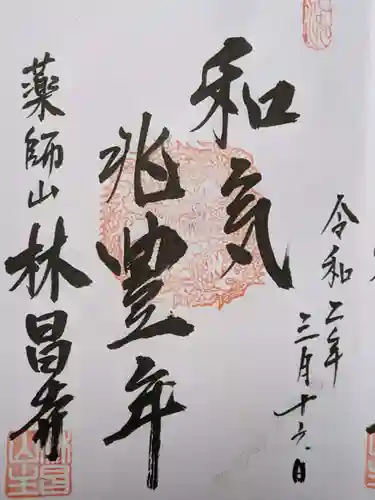 令和二年
三月十六日
和気
兆豊年
薬師山 林昌寺